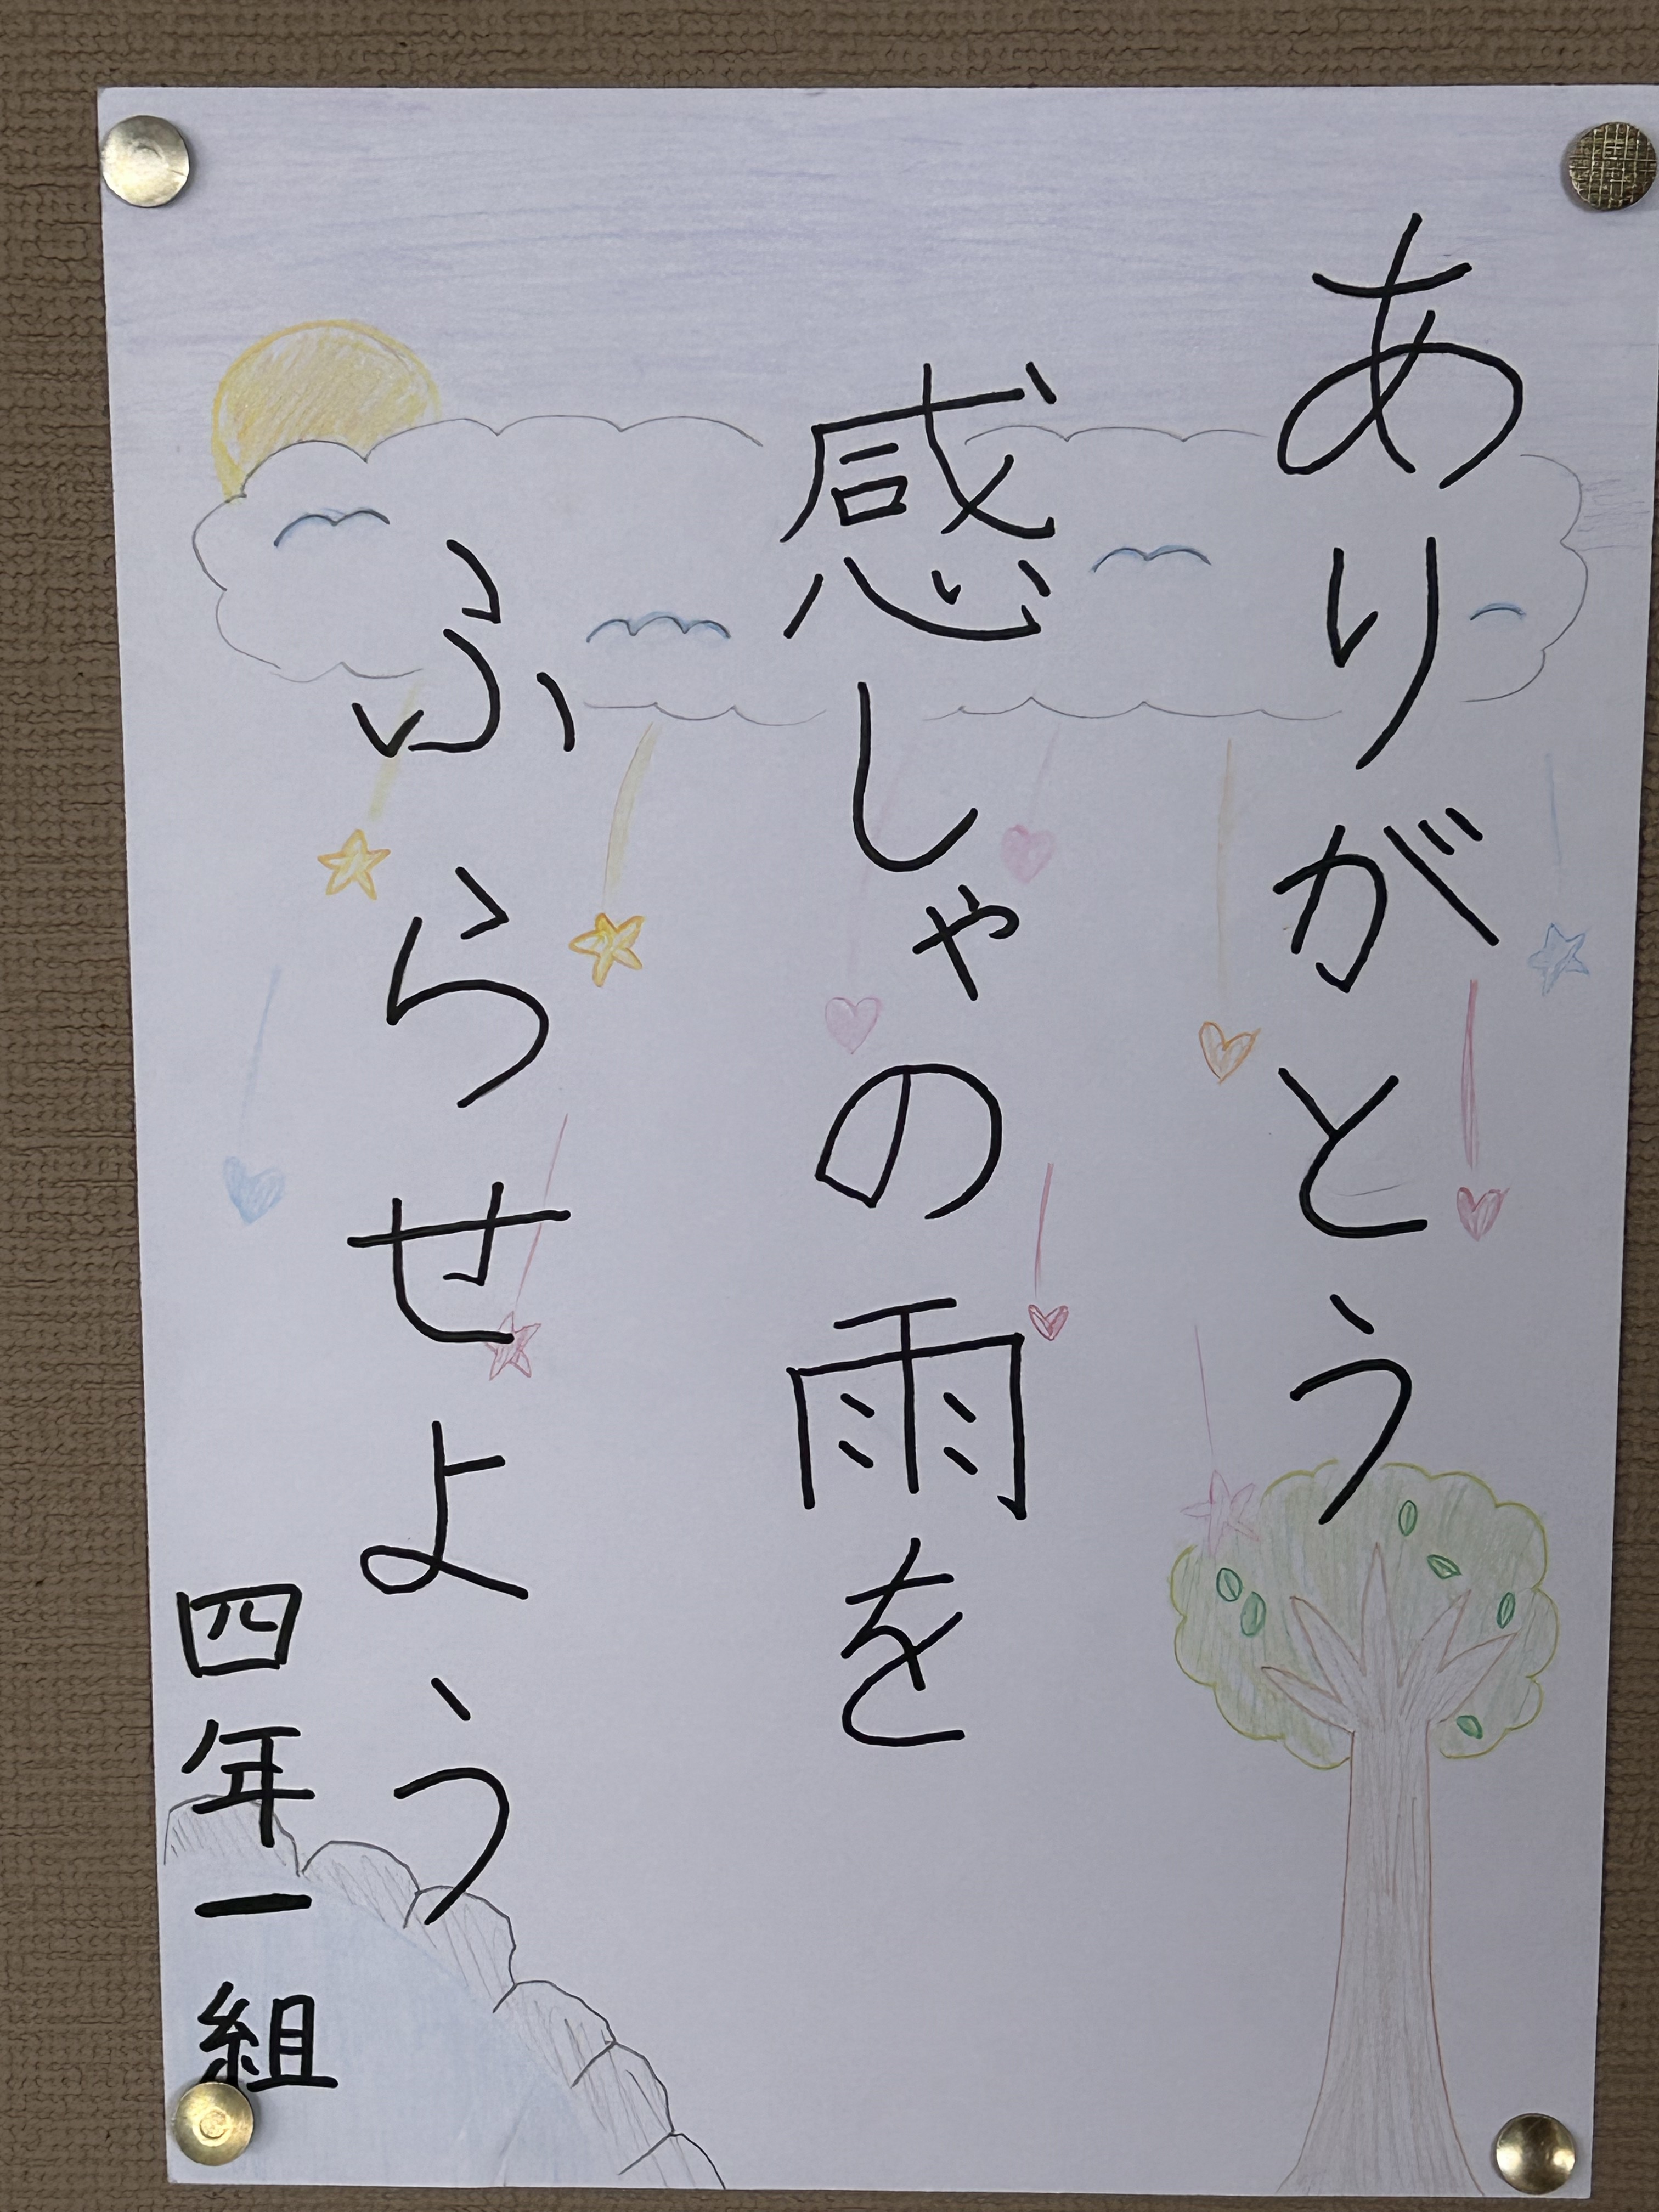 ありがとう
感しゃの雨を
ふらせよう
四年一組